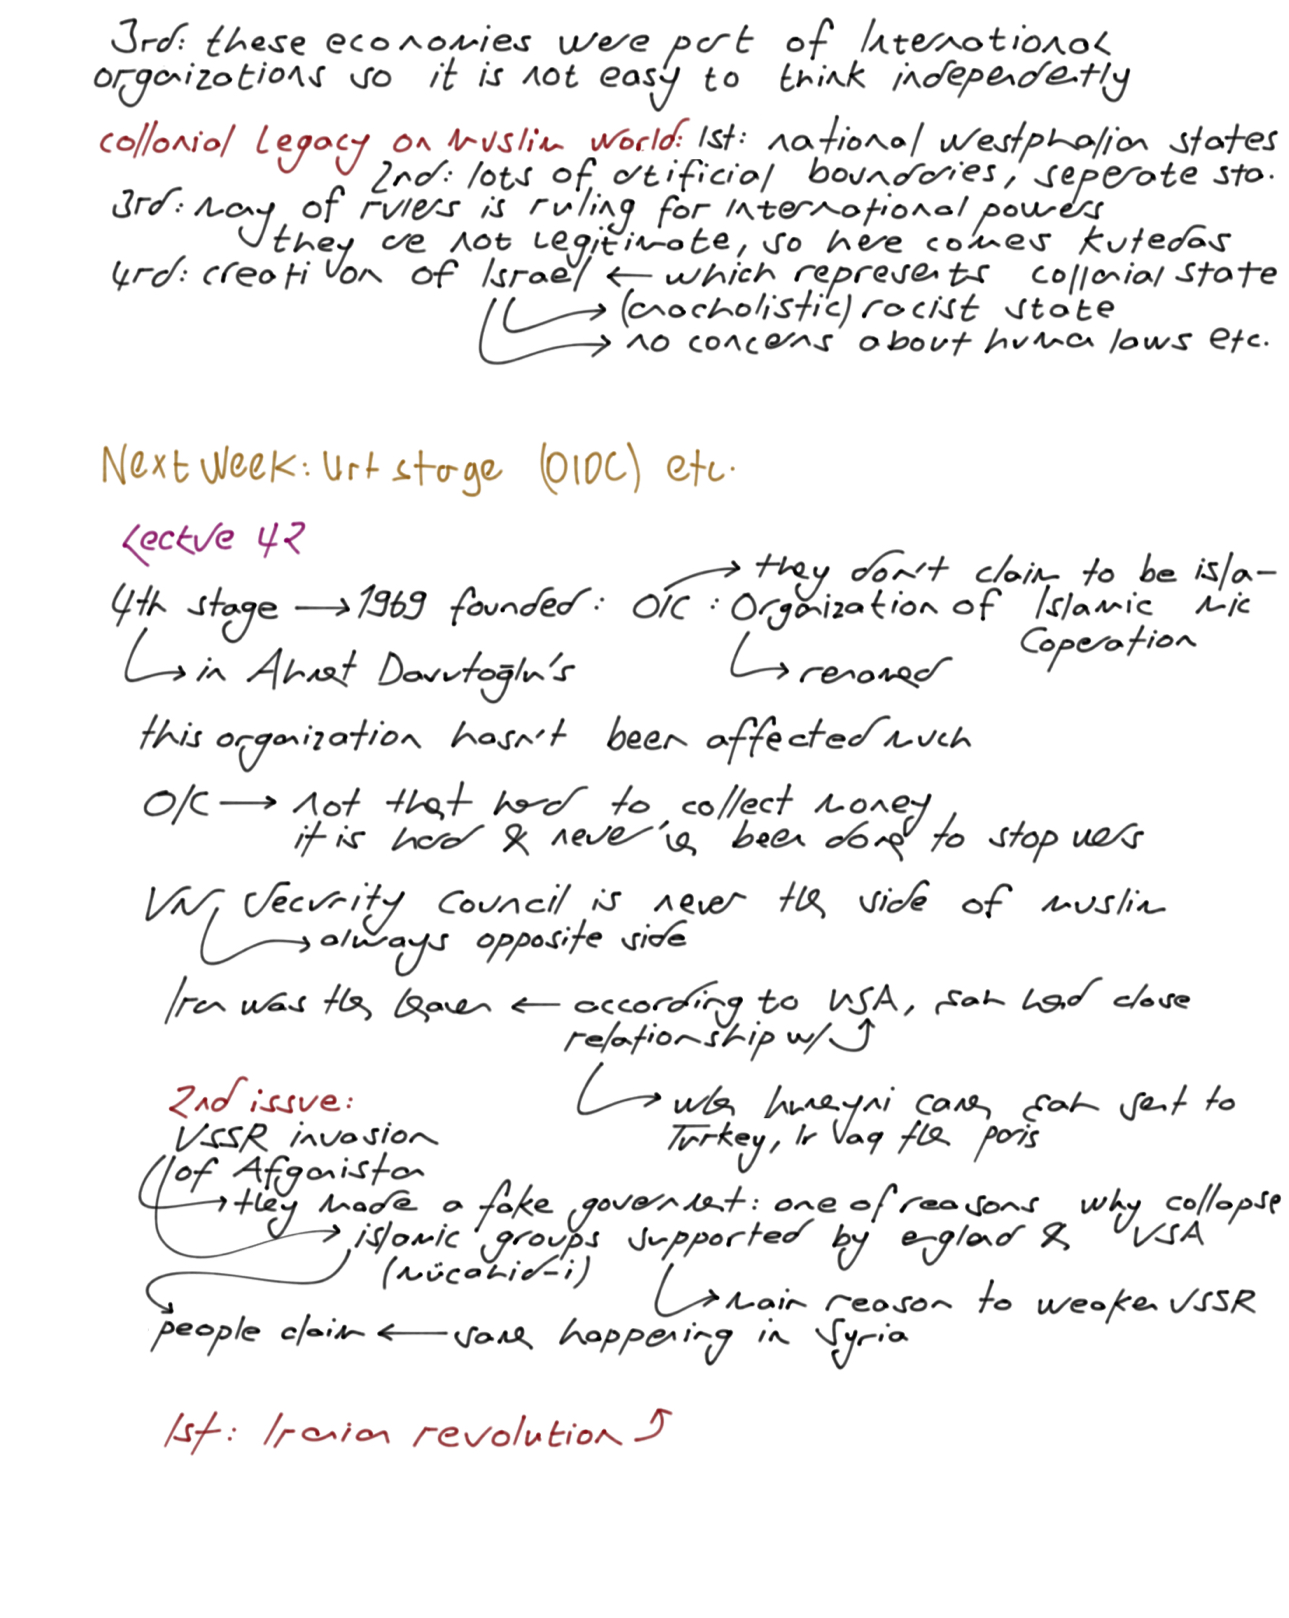 3rd: these economies were part of International
organizations so it is not easy to think independently
collonial legacy on Muslim world: 1st: national westphalion states
2nd: lots of artificial boundaries, seperate sta.
3rd: many of rulers is ruling for International powers
they are not legitimate, so here comes
4rd: creation of Israel ← which represents collonial state
→ racist state
→ no concerns about human laws etc.
Next Week: stage (OIDC) etc.
Lecture 42
→ they don't claim to be isla-
4th stage → 1969 founded: OIC : Organization of Islamic mic
Coperation
→ in Ahmet Davutoğlu's → renamed
this organization hasn't been affected much
OIC → not that hard to collect money
it is hard & never been done to stop
UN Security Council is never the side of muslim
→ always opposite side
Iran was the ← according to USA, şah had close
relationship w/
2nd issue: → when humeyni came, şah sent to
USSR invasion Turkey, Iraq the paris
of Afganistan
→ they made a fake government: one of reasons why collapse
→ islamic groups supported by england & USA
(mücahid-i)
→ main reason to weaken USSR
people claim ← same happening in Syria
1st: Iranian revolution